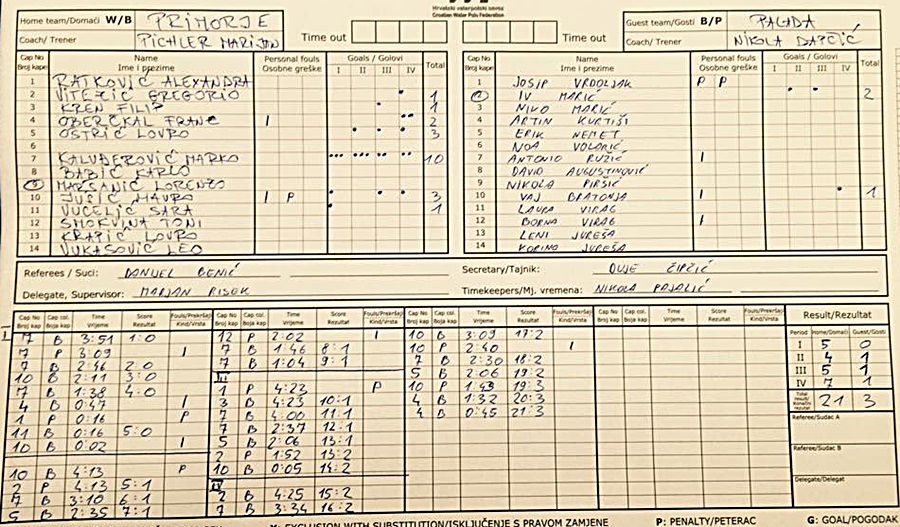 Hrvatski vaterpolski savez
Croatian Water Polo Federation
Home team/Domaći W/B PRIMORJE
Coach/ Trener PICHLER MARIJAN
Time out
Time out
Guest team/Gosti B/P PALADA
Coach/ Trener NIKOLA DAPČIĆ
Cap No Broj kape Name Ime i prezime Personal fouls Osobne greške Goals / Golovi I II III IV Total
1 RATKOVIĆ ALEXANDRA
2 VITEZIĆ GREGORIO 1
3 KREN FILIP 1
4 OBERČKAL FRANC I 2
5 OSTRIĆ LOVRO 3
6
7 KALUĐEROVIĆ MARKO 10
8 BABIĆ KARLO
9 MARSANIĆ LORENZO
10 JUŠIĆ MAURO I P 3
11 VUČELIĆ SARA 1
12 SMOKVINA TONI
13 KRAPIĆ LOVRO
14 VUKASOVIĆ LEO
Cap No Broj kape Name Ime i prezime Personal fouls Osobne greške Goals / Golovi I II III IV Total
1 JOSIP VRDOLJAK P P
2 IV MARIĆ 2
3 NIKO MARIĆ
4 ARTIN KURTIŠI
5 ERIK NEMET
6 NOA VOLARIĆ
7 ANTONIO RUŽIĆ I
8 DAVID AUGUSTINOVIĆ
9 NIKOLA PIRŠIĆ
10 VAJ BRATONJA I 1
11 LAURA VIRAG
12 BORNA VIRAG I
13 LENI JUREŠA
14 KORINO JUREŠA
Referees / Suci: DANIJEL BENIĆ
Delegate, Supervisor: MARJAN RISEK
Secretary/Tajnik: DUJE ČIPČIĆ
Timekeepers/Mj. vremena: NIKOLA PAJALIĆ
Cap No Broj kap Cap col. Boja kap Time Vrijeme Score Rezultat Fouls/Prekršaj Kind/Vrsta
I
7 B 3:51 1:0
7 P 3:09 I
7 B 2:46 2:0
10 B 2:11 3:0
7 B 1:38 4:0
4 B 0:47 I
1 P 0:16 P
11 B 0:16 5:0
10 B 0:02 I
10 B 4:13 P
2 P 4:13 5:1
7 B 3:10 6:1
5 B 2:35 7:1
Cap No Broj kap Cap col. Boja kap Time Vrijeme Score Rezultat Fouls/Prekršaj Kind/Vrsta
12 P 2:02 I
7 B 1:46 8:1
7 B 1:04 9:1
III
1 P 4:23 P
3 B 4:23 10:1
7 B 4:00 11:1
7 B 2:37 12:1
5 B 2:06 13:1
2 P 1:52 13:2
10 B 0:05 14:2
IV
2 B 4:25 15:2
7 B 3:34 16:2
Cap No Broj kap Cap col. Boja kap Time Vrijeme Score Rezultat Fouls/Prekršaj Kind/Vrsta
10 B 3:09 17:2
10 P 2:40 I
7 B 2:30 18:2
5 B 2:06 19:2
10 P 1:43 19:3
4 B 1:32 20:3
4 B 0:45 21:3
Cap No Broj kap Cap col. Boja kap Time Vrijeme Score Rezultat Fouls/Prekršaj Kind/Vrsta
Result/Rezultat
Period Home/Domaći Guest/Gosti
I 5 0
II 4 1
III 5 1
IV 7 1
Total result/ Konačni rezultat 21 3
Referee/Sudac A
Referee/Sudac B
Delegate/Delegat
EXCLUSION WITH SUBSTITUTION/ISKLJUČENJE S PRAVOM ZAMJENE P: PENALTY/PETERAC G: GOAL/POGODAK